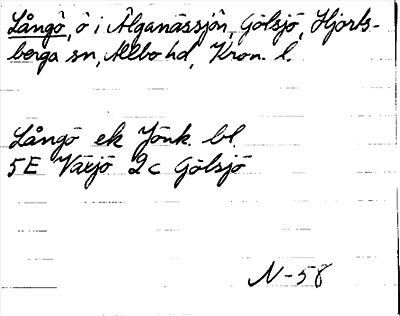 Långö, ö i Älganässjön, Gölsjö, Hjorts-
berga sn, Allbo hd, Kron. l.
Långö ek Jönk. bl.
5E Växjö 2c Gölsjö
N-58